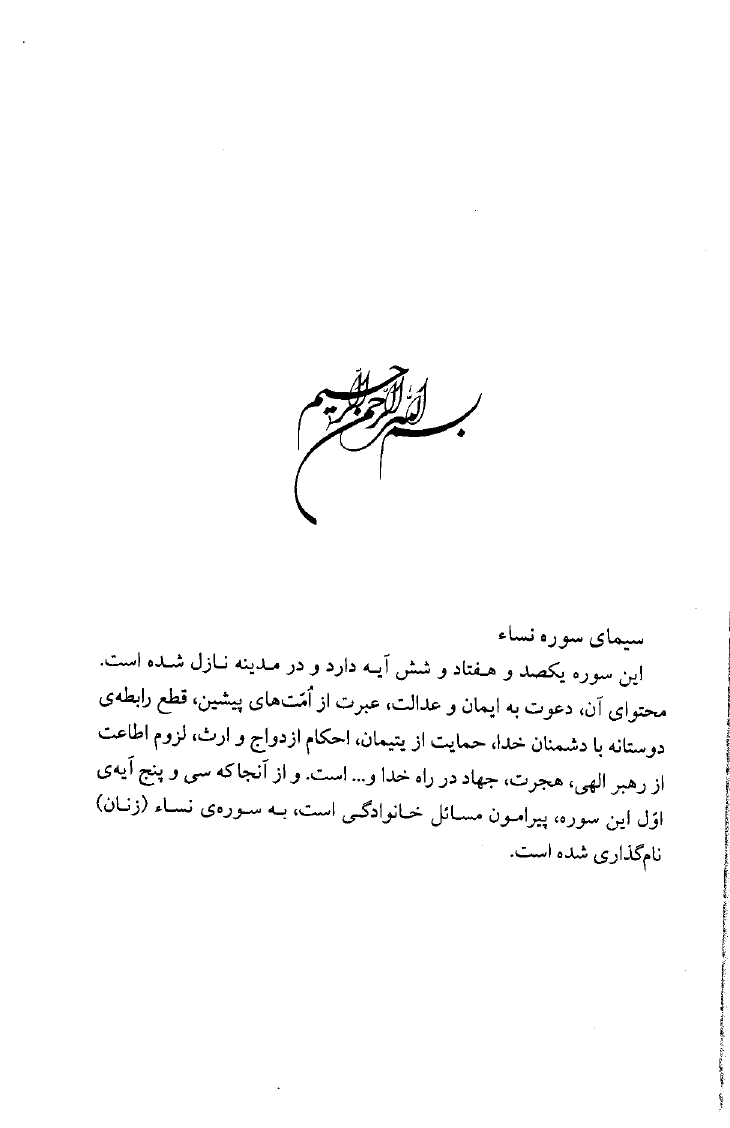 بسم الله الرحمن الرحیم
سیمای سوره نساء
این سوره یکصد و هفتاد و شش آیه دارد و در مدینه نازل شده است.
محتوای آن، دعوت به ایمان و عدالت، عبرت از اُمّت‌های پیشین، قطع رابطه‌ی
دوستانه با دشمنان خدا، حمایت از یتیمان، احکام ازدواج و ارث، لزوم اطاعت
از رهبر الهی، هجرت، جهاد در راه خدا و... است. و از آنجا که سی و پنج آیه‌ی
اوّل این سوره، پیرامون مسائل خانوادگی است، به سوره‌ی نساء (زنان)
نام‌گذاری شده است.